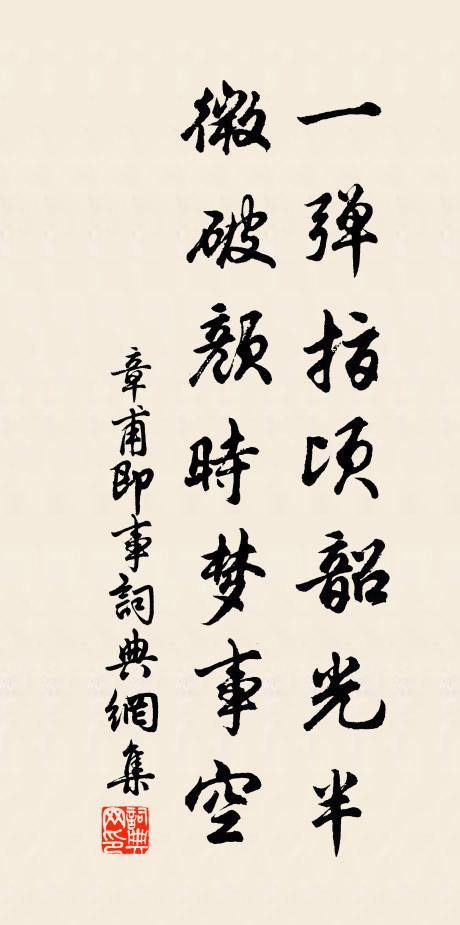 一弹指顷韶光半
微破颜時梦事空
章甫即事詞典網集
詞典网印